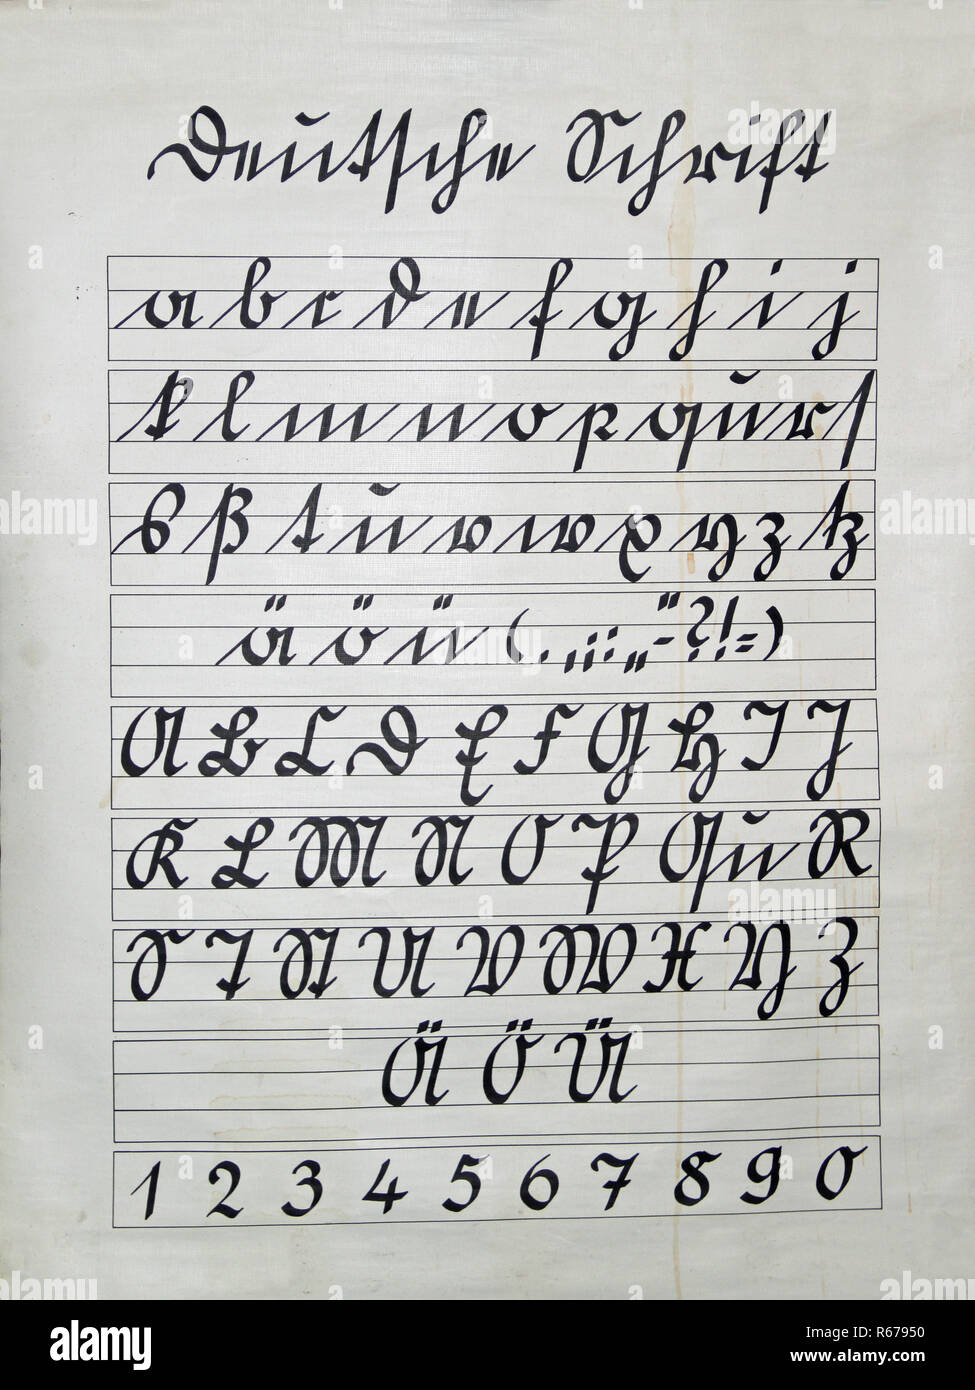 Deutsche Schrift
a b c d e f g h i j
k l m n o p qu r ſ
s ß t u v w x y z tz
ä ö ü ( . , ; : „ - “ ? ! = )
A B C D E F G H I J
K L M N O P Qu R
S T St U V W X Y Z
Ä Ö Ü
1 2 3 4 5 6 7 8 9 0
alamy
Image ID: R67950
www.alamy.com